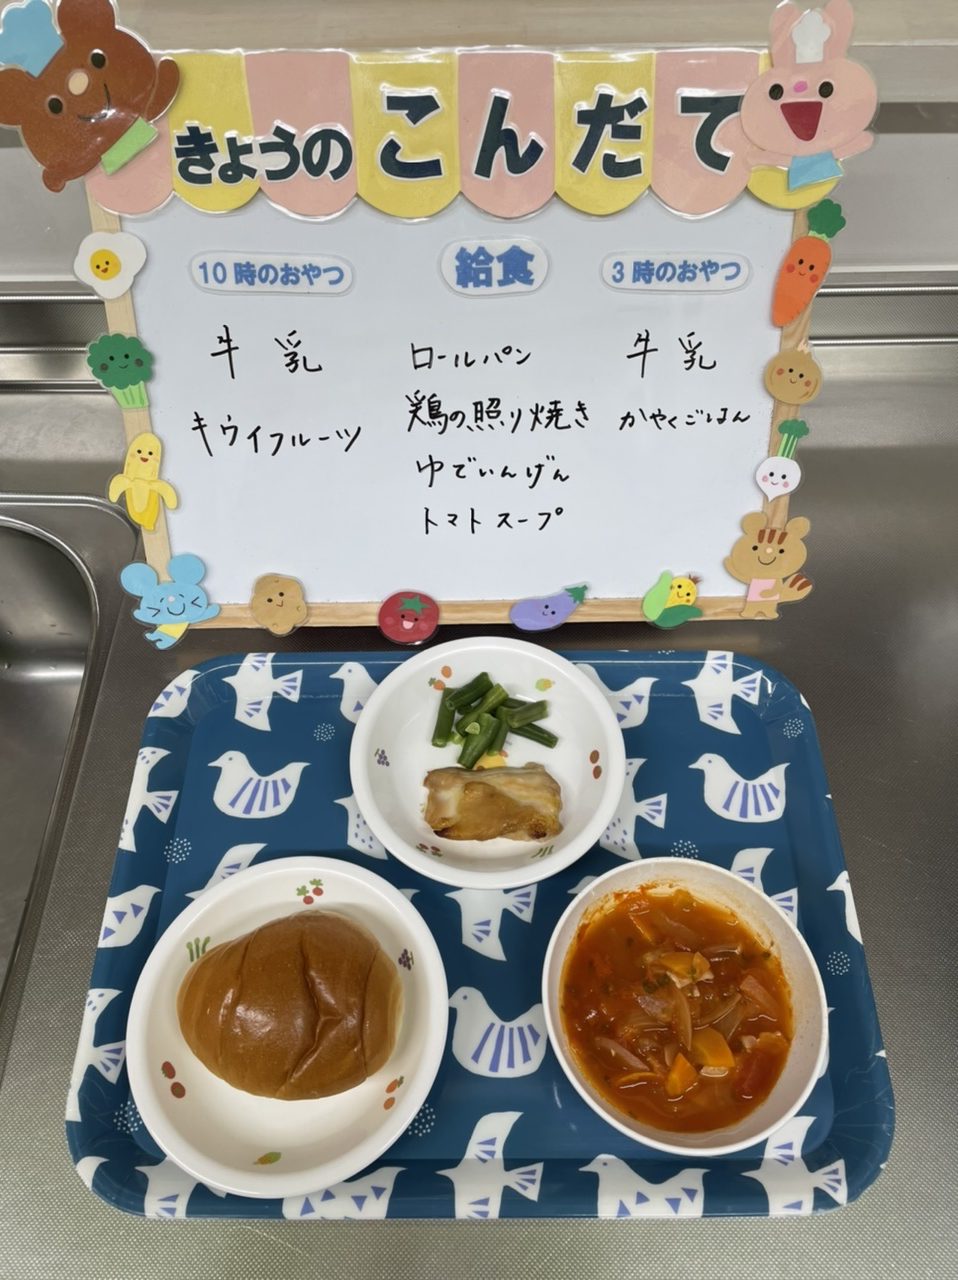 きょうのこんだて
10時のおやつ
牛乳
キウイフルーツ
給食
ロールパン
鶏の照り焼き
ゆでいんげん
トマトスープ
3時のおやつ
牛乳
かやくごはん